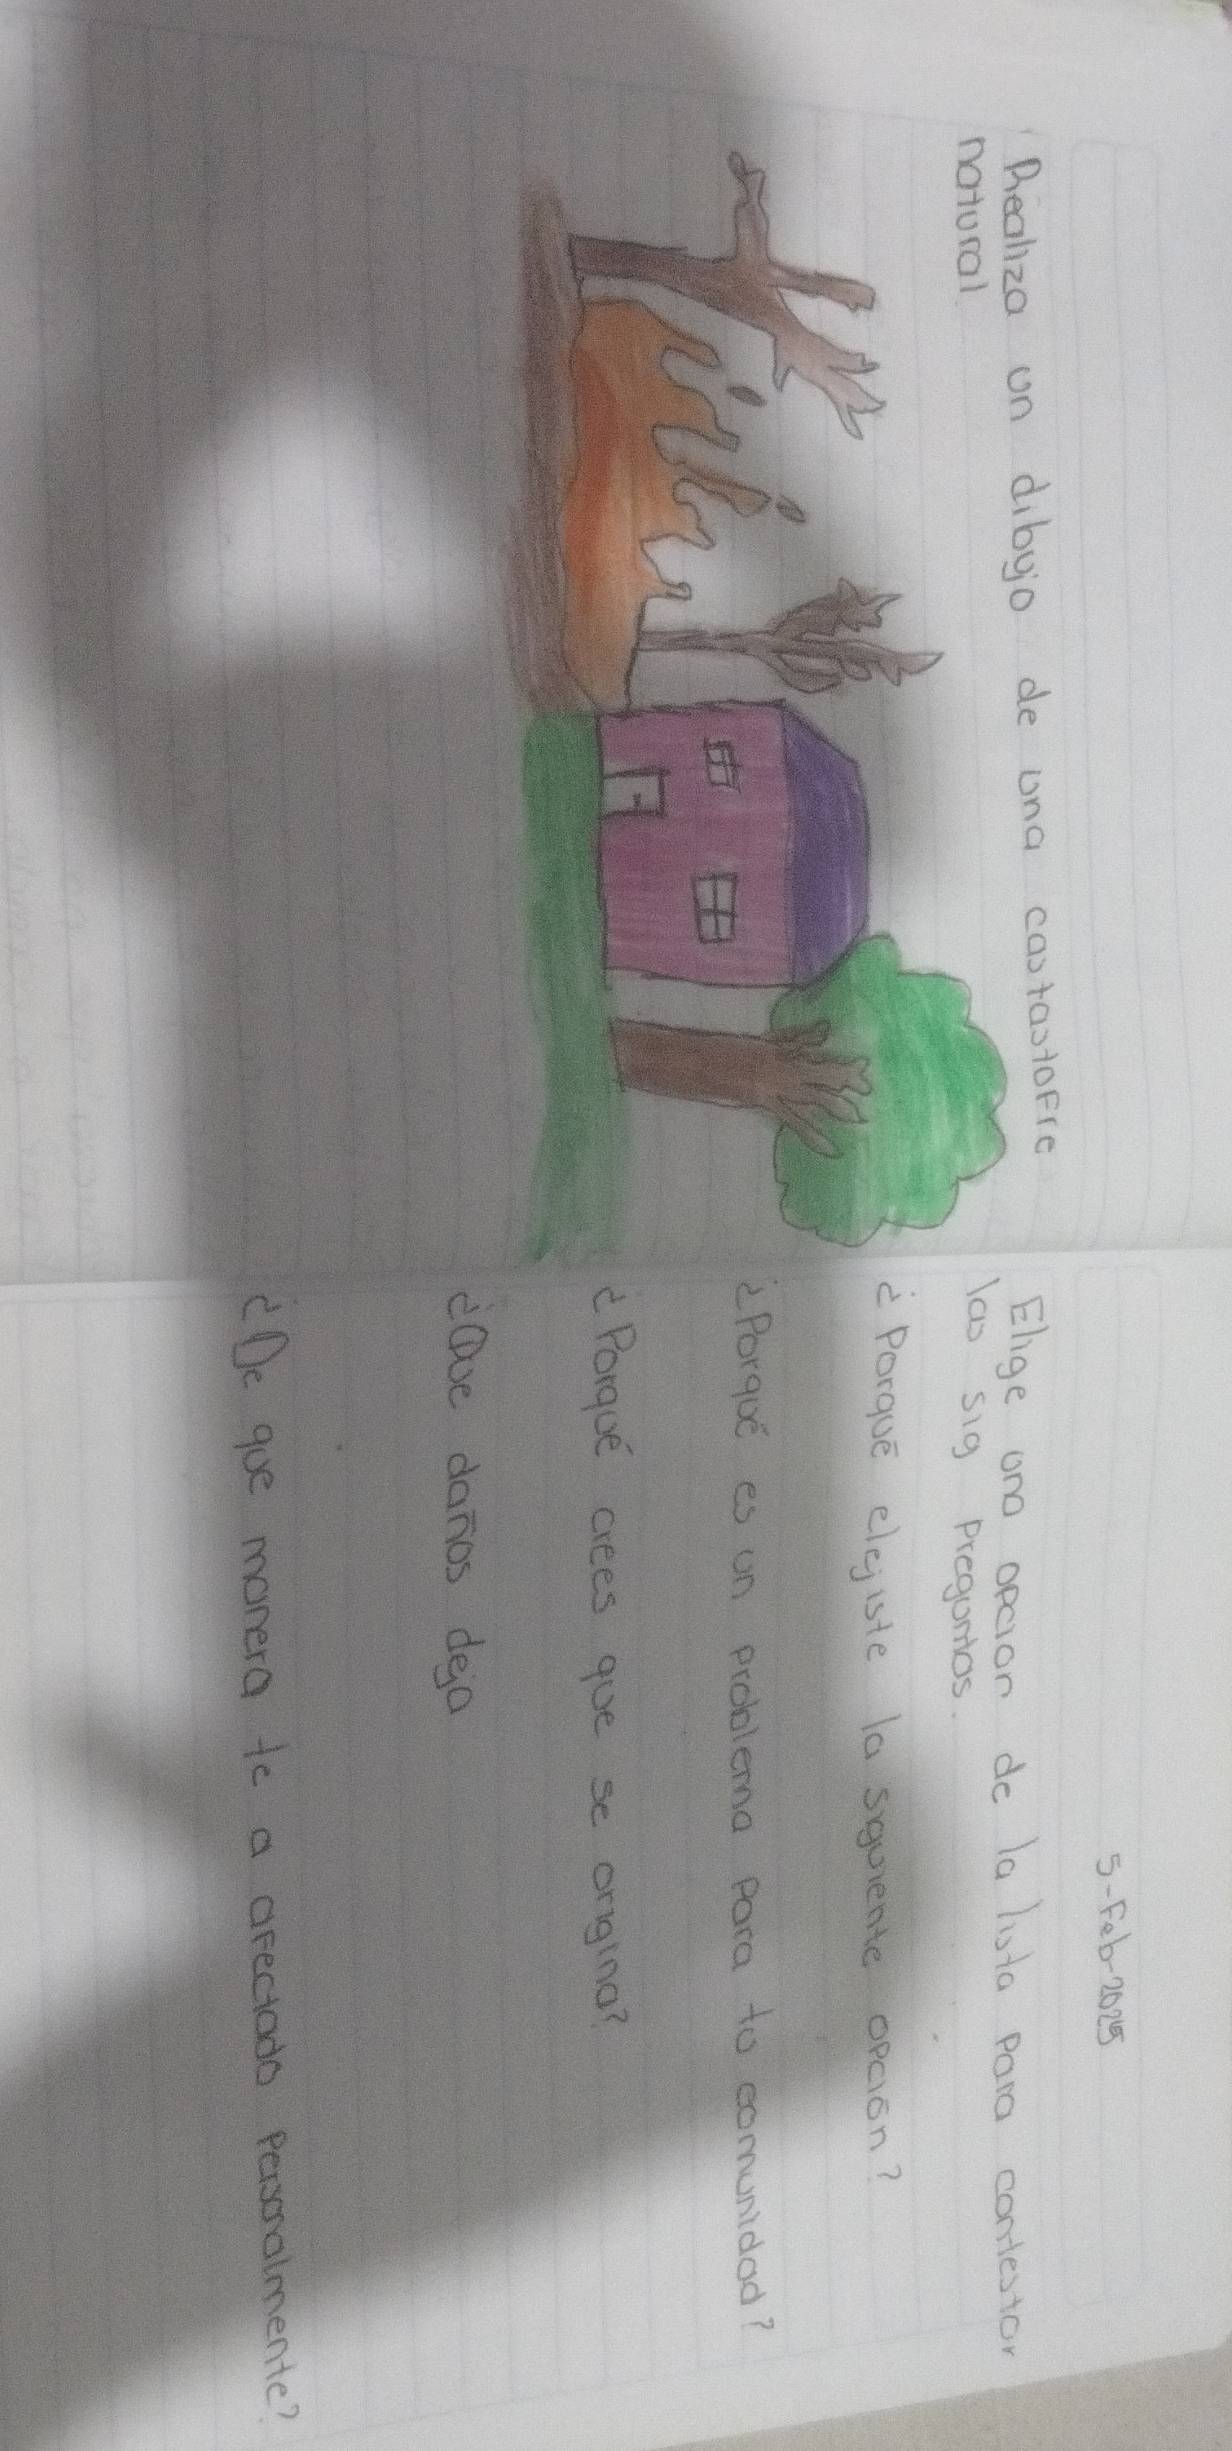 Realiza un dibujo de una castastofre
natural.
5-Feb-2025
Elige una opcion de la lista para contestar
las sig preguntas.
¿Porqué elejiste la siguiente opción?
¿Porqué es un problema para tu comunidad?
¿Porqué crees que se origina?
¿Que daños deja
¿De que manera te a afectado personalmente?